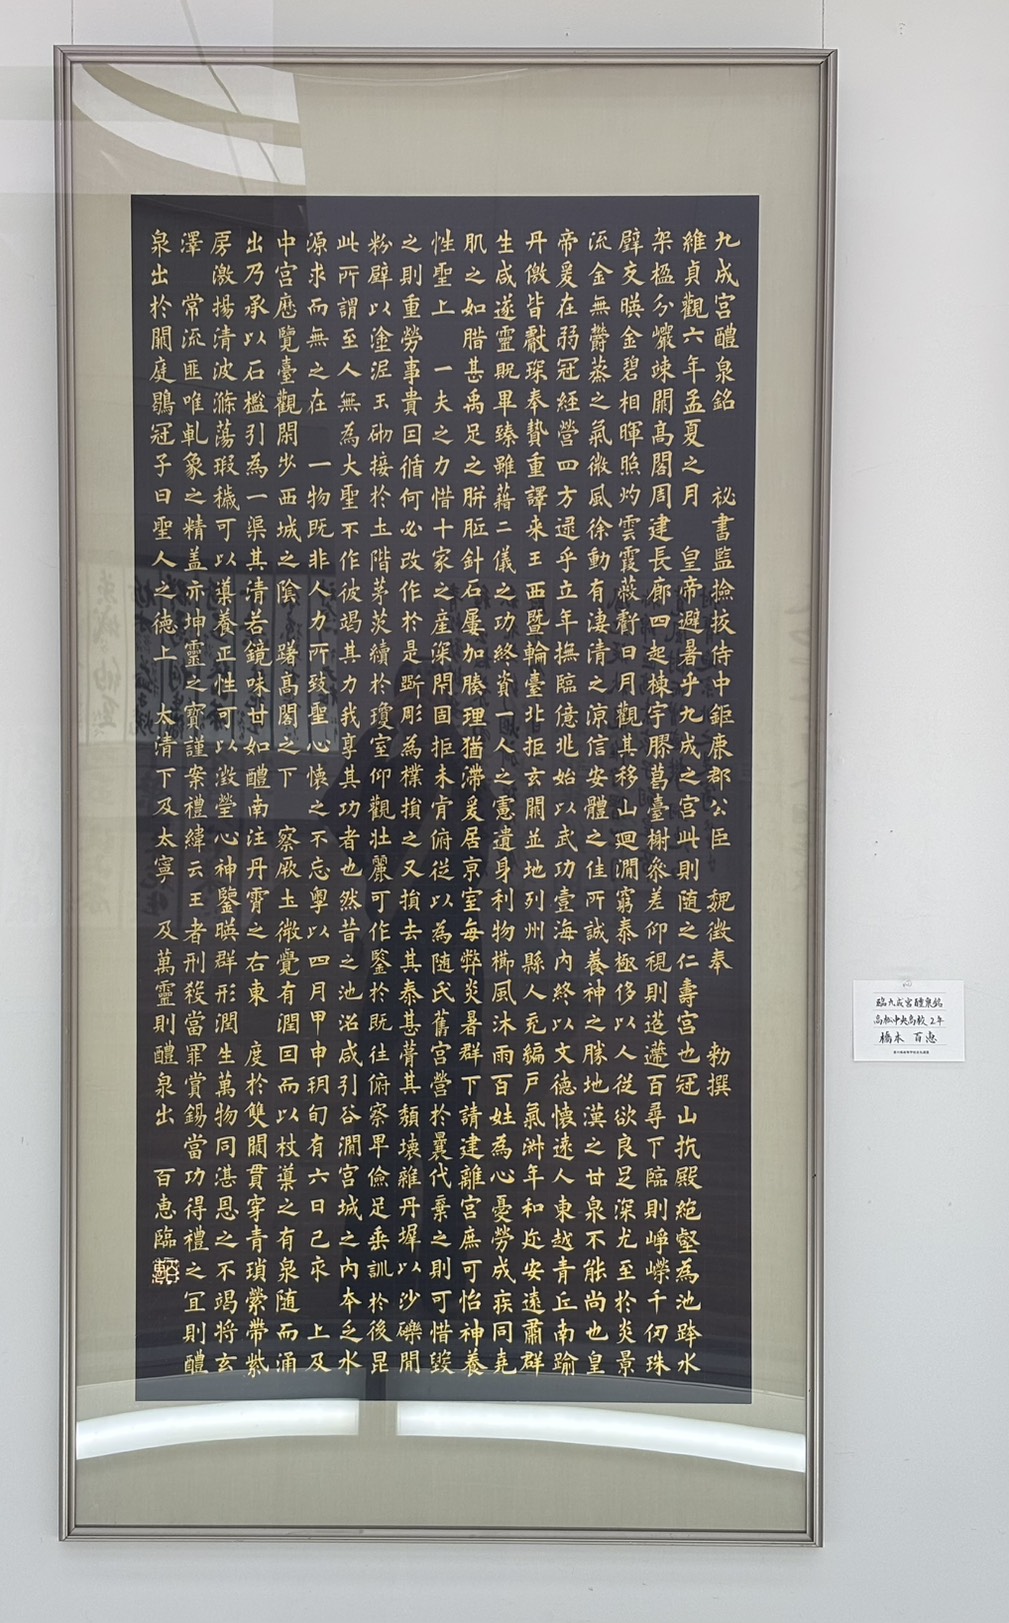 九成宮醴泉銘　秘書監撿挍侍中鉅鹿郡公臣　魏徵奉　勑撰
維貞觀六年孟夏之月　皇帝避暑乎九成之宮此則随之仁壽宮也冠山抗殿絶壑為池跨水
架楹分巖竦闕高閣周建長廊四起棟宇膠葛臺榭叅差仰視則迢遰百尋下臨則崢嶸千仞珠
璧交暎金碧相暉照灼雲霞蔽虧日月觀其移山迴澗窮泰極侈以人從欲良足深尤至於炎景
流金無欝蒸之氣微風徐動有淒清之涼信安體之佳所誠養神之勝地漢之甘泉不能尚也皇
帝爰在弱冠經營四方逯乎立年撫臨億兆始以武功壹海內終以文德懷遠人東越青丘南踰
丹徼皆獻琛奉贄重譯来王西暨輪臺北拒玄闕並地列州縣人充編戶氣淑年和迩安遠肅群
生咸遂靈貺畢臻雖藉二儀之功終資一人之慮遺身利物櫛風沐雨百姓為心憂勞成疾同堯
肌之如腊甚禹足之胼胝針石屢加腠理猶滯爰居京室每弊炎暑群下請建離宮庶可怡神養
性聖上　一夫之力惜十家之産深閇固拒未肯俯從以為随氏舊宮營於曩代棄之則可惜毀
之則重勞事貴因循何必改作於是斲彫為樸損之又損去其泰甚葺其頹壞雜丹墀以沙礫間
粉壁以塗泥玉砌接於土階茅茨續於瓊室仰觀壯麗可作鑒於既往俯察卑儉足垂訓於後昆
此所謂至人無為大聖不作彼竭其力我享其功者也然昔之池沼咸引谷澗宮城之內本乏水
源求而無之在　一物既非人力所致聖心懷之不忘粤以四月甲申朔旬有六日己亥　上及
中宮歷覽臺觀閑步西城之陰　躇高閣之下　察厥土微覺有潤因而以杖導之有泉随而涌
出乃承以石檻引為一渠其清若鏡味甘如醴南注丹霄之右東　度於雙闕貫穿青瑣縈帶紫
房激揚清波滌蕩瑕穢可以導養正性可以澂瑩心神鑒暎群形潤生萬物同湛恩之不竭将玄
澤　常流匪唯乹象之精盖亦坤靈之寳謹案禮緯云王者刑殺當罪賞錫當功得禮之宜則醴
泉出於闕庭鶡冠子曰聖人之徳上　太清下及太寧　及萬靈則醴泉出　百恵臨
臨九成宮醴泉銘
高松中央高校 2年
橋本 百恵